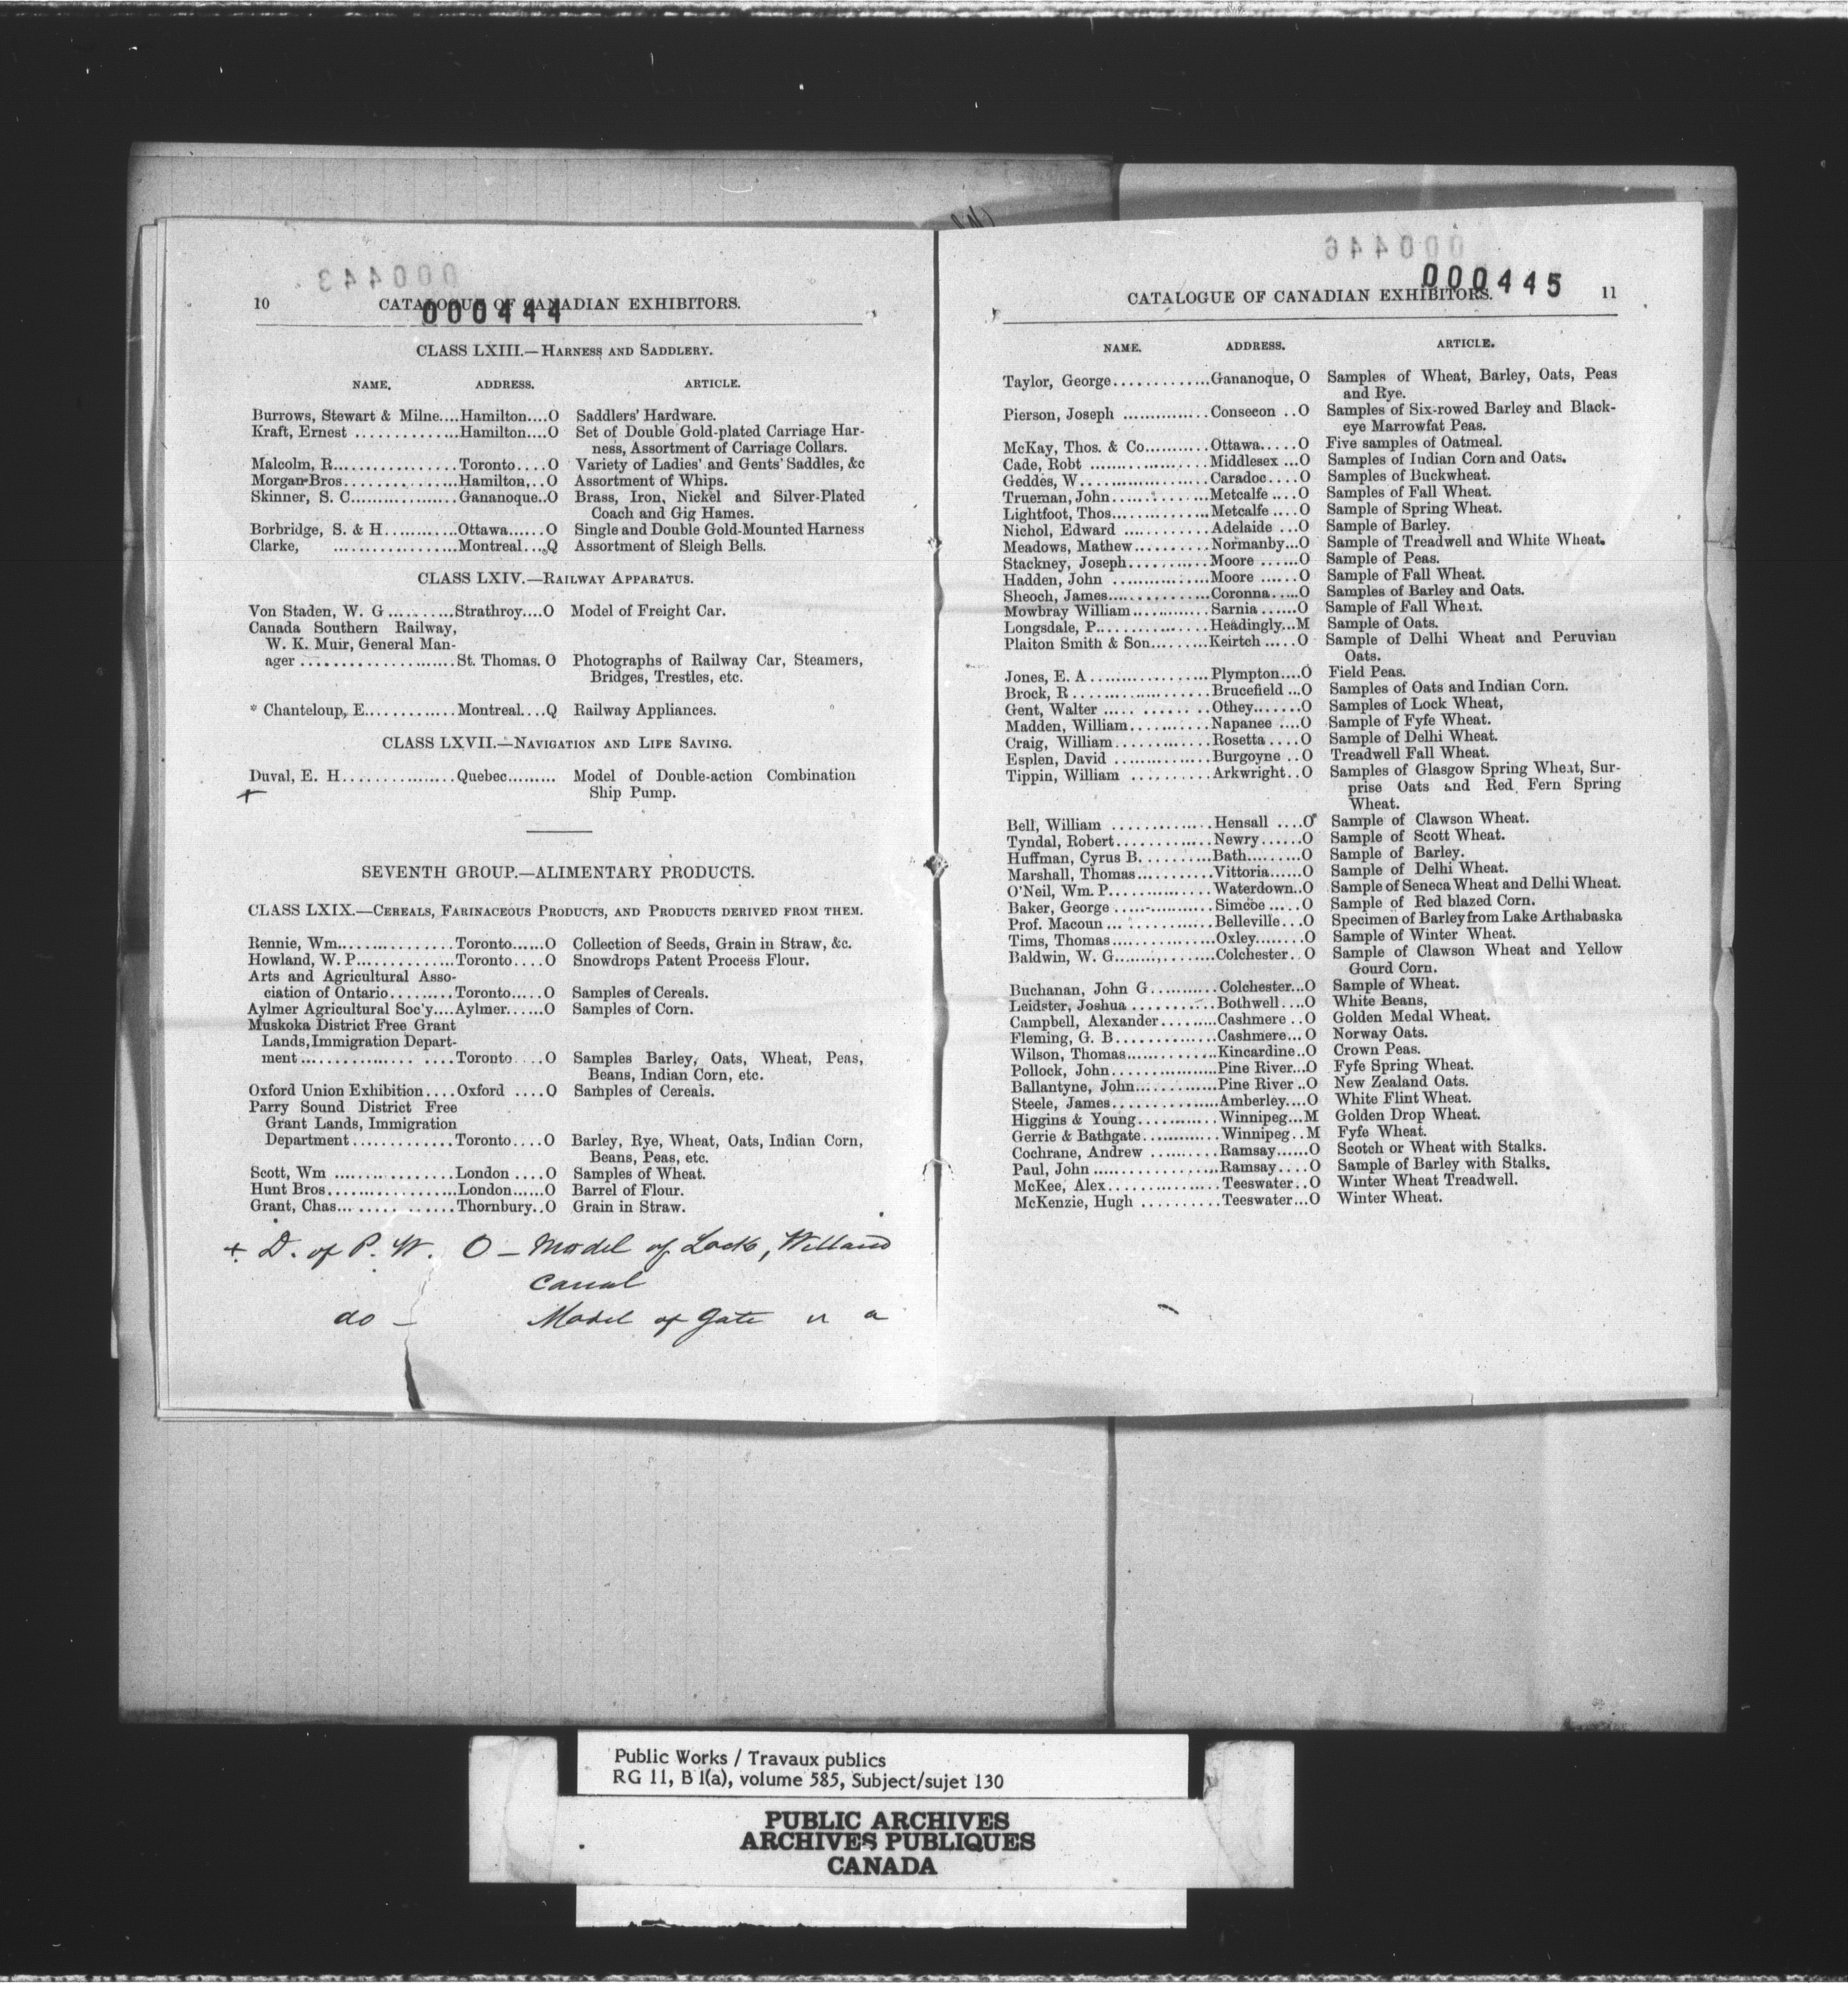 000443
10 CATALOGUE OF CANADIAN EXHIBITORS.
000444
CLASS LXIII.—HARNESS AND SADDLERY.
NAME. ADDRESS. ARTICLE.
Burrows, Stewart & Milne....Hamilton....O Saddlers' Hardware.
Kraft, Ernest ..............Hamilton....O Set of Double Gold-plated Carriage Har-
ness, Assortment of Carriage Collars.
Malcolm, R..................Toronto....O Variety of Ladies' and Gents' Saddles, &c
Morgan Bros.................Hamilton,..O Assortment of Whips.
Skinner, S. C..................Gananoque..O Brass, Iron, Nickel and Silver-Plated
Coach and Gig Hames.
Borbridge, S. & H............Ottawa......O Single and Double Gold-Mounted Harness
Clarke, ..................Montreal....Q Assortment of Sleigh Bells.
CLASS LXIV.—RAILWAY APPARATUS.
Von Staden, W. G ..........Strathroy....O Model of Freight Car.
Canada Southern Railway,
W. K. Muir, General Man-
ager .......................St. Thomas. O Photographs of Railway Car, Steamers,
Bridges, Trestles, etc.
* Chanteloup, E.............Montreal....Q Railway Appliances.
CLASS LXVII.—NAVIGATION AND LIFE SAVING.
Duval, E. H.................Quebec......... Model of Double-action Combination
+ Ship Pump.
SEVENTH GROUP.—ALIMENTARY PRODUCTS.
CLASS LXIX.—CEREALS, FARINACEOUS PRODUCTS, AND PRODUCTS DERIVED FROM THEM.
Rennie, Wm.................Toronto......O Collection of Seeds, Grain in Straw, &c.
Howland, W. P..............Toronto....O Snowdrops Patent Process Flour.
Arts and Agricultural Asso-
ciation of Ontario..........Toronto.....O Samples of Cereals.
Aylmer Agricultural Soc'y....Aylmer......O Samples of Corn.
Muskoka District Free Grant
Lands, Immigration Depart-
ment.......................Toronto....O Samples Barley, Oats, Wheat, Peas,
Beans, Indian Corn, etc.
Oxford Union Exhibition....Oxford ....O Samples of Cereals.
Parry Sound District Free
Grant Lands, Immigration
Department.............Toronto....O Barley, Rye, Wheat, Oats, Indian Corn,
Beans, Peas, etc.
Scott, Wm .................London ....O Samples of Wheat.
Hunt Bros..................London......O Barrel of Flour.
Grant, Chas................Thornbury..O Grain in Straw.
+ D. of P. W. O – Model of Lock, Welland
Canal
do – Model of Gate
000446
000445
CATALOGUE OF CANADIAN EXHIBITORS. 11
NAME. ADDRESS. ARTICLE.
Taylor, George.............Gananoque, O Samples of Wheat, Barley, Oats, Peas
and Rye.
Pierson, Joseph ..............Consecon ..O Samples of Six-rowed Barley and Black-
eye Marrowfat Peas.
McKay, Thos. & Co...........Ottawa.....O Five samples of Oatmeal.
Cade, Robt ..................Middlesex ...O Samples of Indian Corn and Oats.
Geddes, W...................Caradoc....O Samples of Buckwheat.
Trueman, John...............Metcalfe ....O Samples of Fall Wheat.
Lightfoot, Thos..............Metcalfe ....O Sample of Spring Wheat.
Nichol, Edward .............Adelaide ...O Sample of Barley.
Meadows, Mathew...........Normanby...O Sample of Treadwell and White Wheat.
Stackney, Joseph............Moore ......O Sample of Peas.
Hadden, John ...............Moore ......O Sample of Fall Wheat.
Sheoch, James................Coronna.....O Samples of Barley and Oats.
Mowbray William............Sarnia ......O Sample of Fall Wheat.
Longsdale, P.................Headingly...M Sample of Oats.
Plaiton Smith & Son.........Keirtch .....O Sample of Delhi Wheat and Peruvian
Oats.
Jones, E. A..................Plympton....O Field Peas.
Brock, R ....................Brucefield ...O Samples of Oats and Indian Corn.
Gent, Walter ................Othey.......O Samples of Lock Wheat,
Madden, William.............Napanee ....O Sample of Fyfe Wheat.
Craig, William...............Rosetta ....O Sample of Delhi Wheat.
Esplen, David ...............Burgoyne ..O Treadwell Fall Wheat.
Tippin, William .............Arkwright..O Samples of Glasgow Spring Wheat, Sur-
prise Oats and Red Fern Spring
Wheat.
Bell, William ................Hensall ....O Sample of Clawson Wheat.
Tyndal, Robert..............Newry......O Sample of Scott Wheat.
Huffman, Cyrus B...........Bath.........O Sample of Barley.
Marshall, Thomas............Vittoria......O Sample of Delhi Wheat.
O'Neil, Wm. P...............Waterdown..O Sample of Seneca Wheat and Delhi Wheat.
Baker, George ...............Simcoe .....O Sample of Red blazed Corn.
Prof. Macoun ................Belleville...O Specimen of Barley from Lake Arthabaska
Tims, Thomas................Oxley.......O Sample of Winter Wheat.
Baldwin, W. G...............Colchester..O Sample of Clawson Wheat and Yellow
Gourd Corn.
Buchanan, John G...........Colchester...O Sample of Wheat.
Leidster, Joshua .............Bothwell....O White Beans,
Campbell, Alexander.........Cashmere ..O Golden Medal Wheat.
Fleming, G. B................Cashmere... O Norway Oats.
Wilson, Thomas..............Kincardine..O Crown Peas.
Pollock, John.................Pine River...O Fyfe Spring Wheat.
Ballantyne, John.............Pine River ..O New Zealand Oats.
Steele, James.................Amberley....O White Flint Wheat.
Higgins & Young.............Winnipeg...M Golden Drop Wheat.
Gerrie & Bathgate............Winnipeg..M Fyfe Wheat.
Cochrane, Andrew ...........Ramsay......O Scotch or Wheat with Stalks.
Paul, John ...................Ramsay....O Sample of Barley with Stalks.
McKee, Alex..................Teeswater..O Winter Wheat Treadwell.
McKenzie, Hugh ..........Teeswater...O Winter Wheat.
Public Works / Travaux publics
RG 11, B 1(a), volume 585, Subject/sujet 130
PUBLIC ARCHIVES
ARCHIVES PUBLIQUES
CANADA